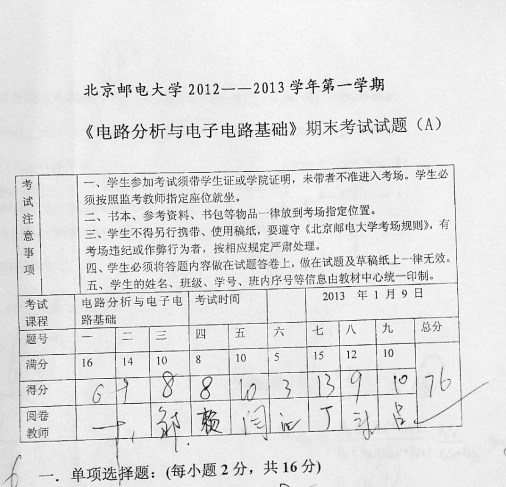 北京邮电大学 2012——2013 学年第一学期
《电路分析与电子电路基础》期末考试试题（A）
考试注意事项
一、学生参加考试须带学生证或学院证明，未带者不准进入考场。学生必
须按照监考教师指定座位就坐。
二、书本、参考资料、书包等物品一律放到考场指定位置。
三、学生不得另行携带、使用稿纸，要遵守《北京邮电大学考场规则》，有
考场违纪或作弊行为者，按相应规定严肃处理。
四、学生必须将答题内容做在试题答卷上，做在试题及草稿纸上一律无效。
五、学生的姓名、班级、学号、班内序号等信息由教材中心统一印制。
考试课程 电路分析与电子电路基础 考试时间 2013 年 1 月 9 日
题号 一 二 三 四 五 六 七 八 九 总分
满分 16 14 10 8 10 5 15 12 10
得分 6 9 8 8 10 3 13 9 10 76
阅卷教师
一．单项选择题：(每小题 2 分，共 16 分)